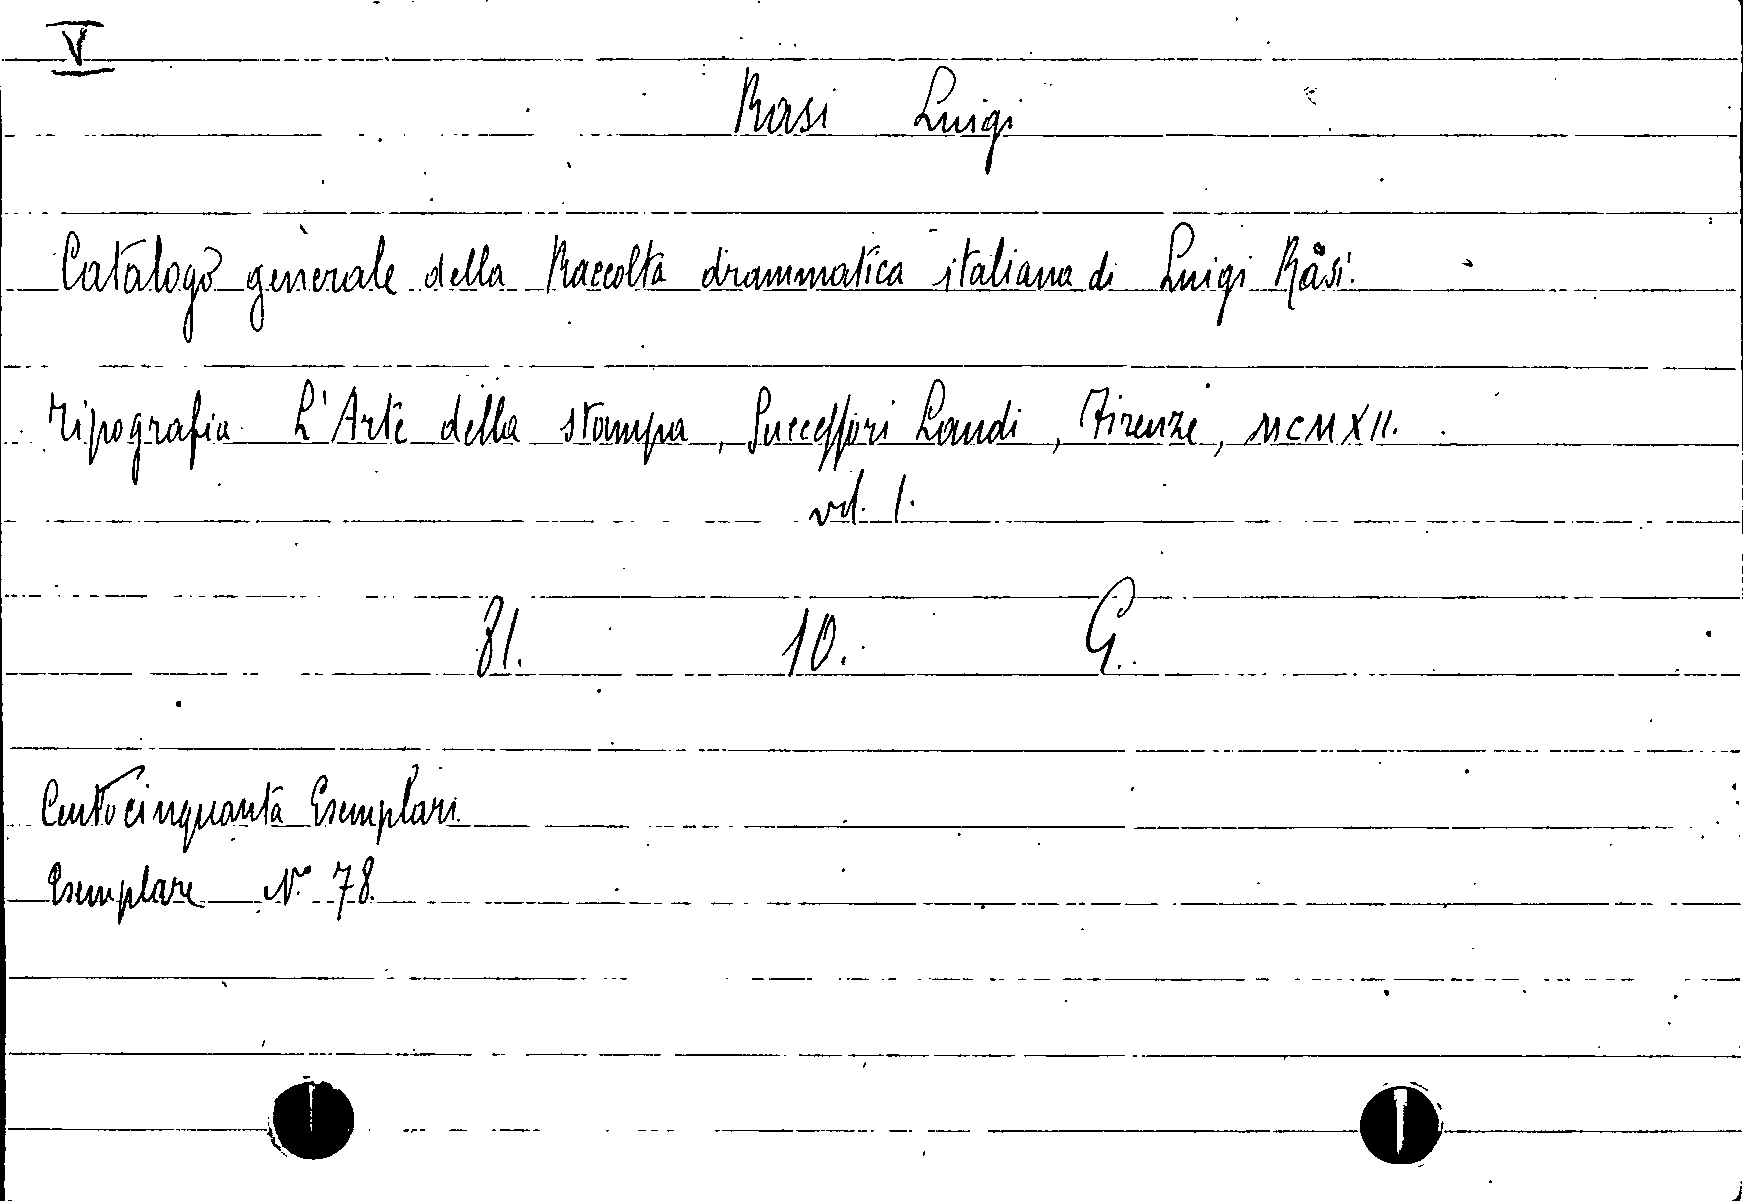 V
Rasi Luigi
Catalogo generale della Raccolta drammatica italiana di Luigi Rasi.
Tipografia L'Arte della Stampa, Successori Landi, Firenze, MCMXII.
vol. 1.
31. 10. G.
Centocinquanta Esemplari
Esemplare N° 78.